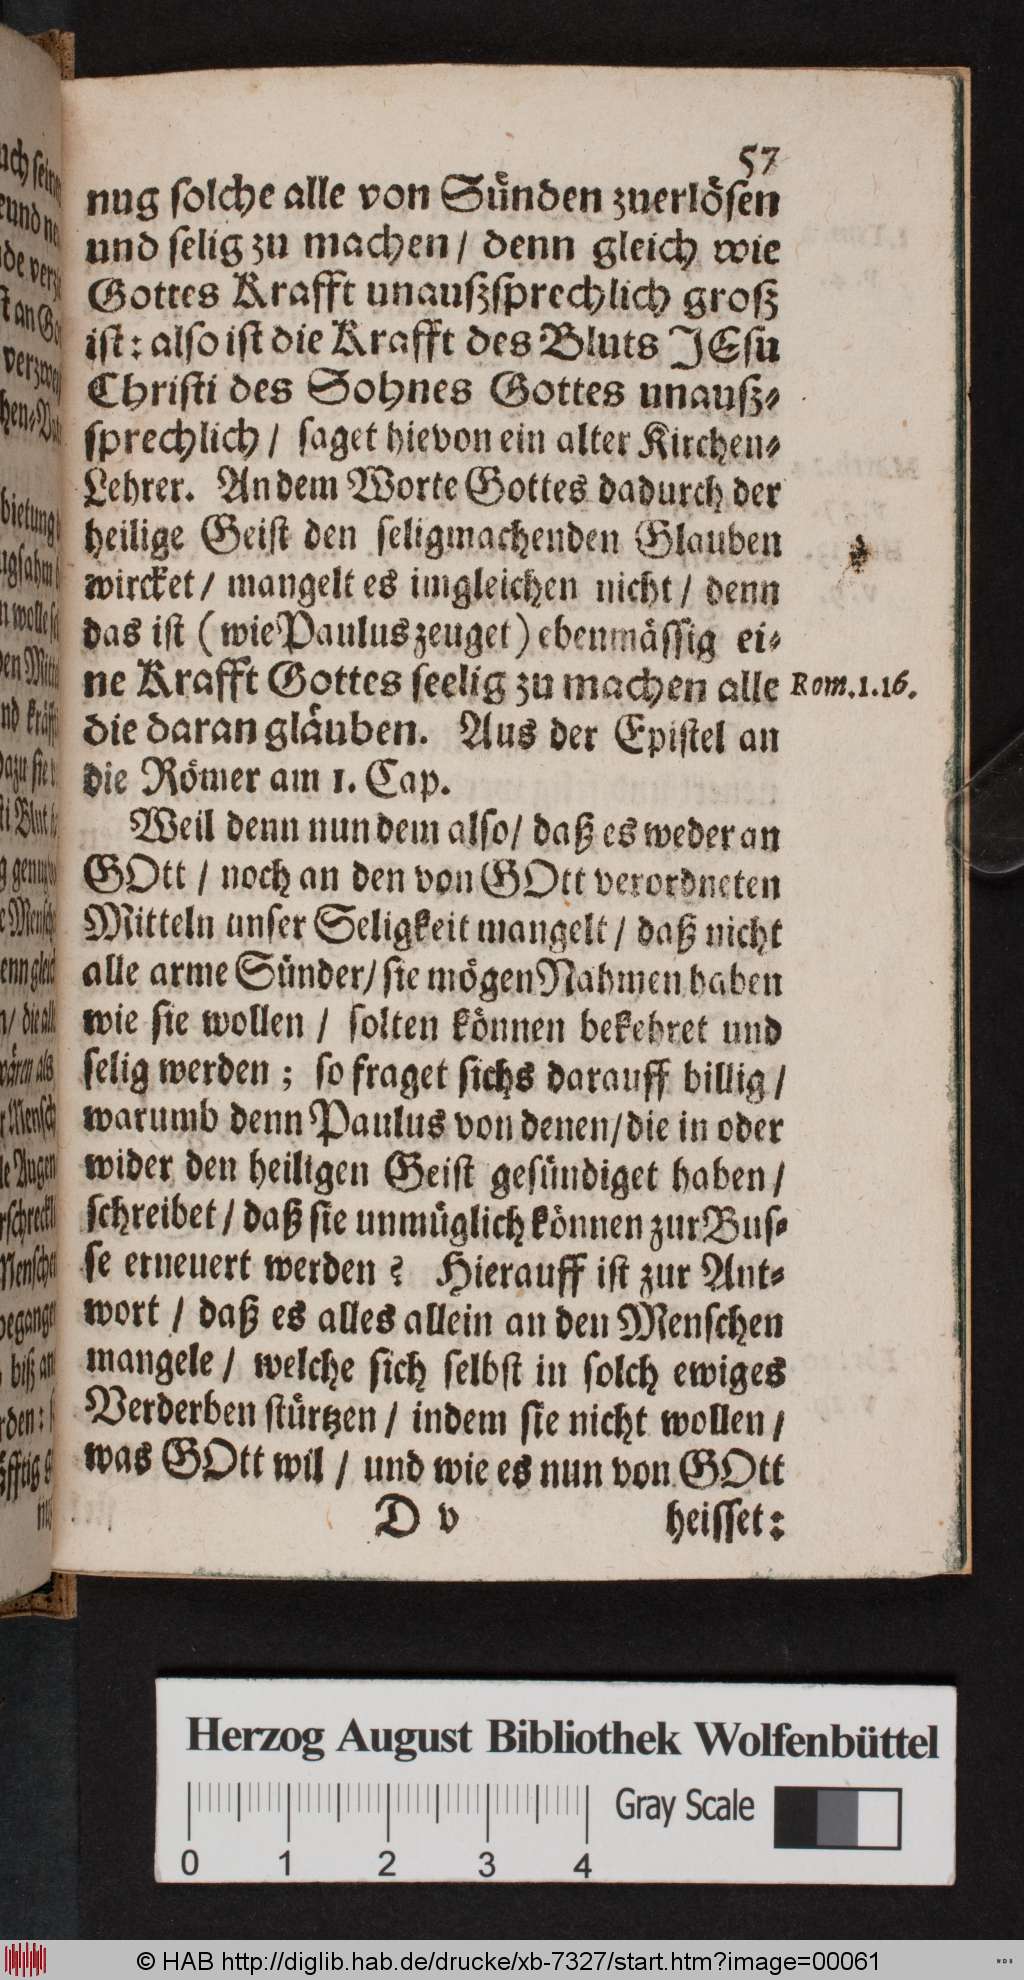 57
nug solche alle von Sünden zuerlösen
und selig zu machen / denn gleich wie
Gottes Krafft unaußsprechlich groß
ist: also ist die Krafft des Bluts JEsu
Christi des Sohnes Gottes unauß-
sprechlich / saget hievon ein alter Kirchen-
Lehrer. An dem Worte Gottes dadurch der
heilige Geist den seligmachenden Glauben
wircket / mangelt es imgleichen nicht / denn
das ist (wie Paulus zeuget) ebenmässig ei-
ne Krafft Gottes seelig zu machen alle Rom. 1. 16.
die daran gläuben. Aus der Epistel an
die Römer am 1. Cap.
Weil denn nun dem also / daß es weder an
GOtt / noch an den von GOtt verordneten
Mitteln unser Seligkeit mangelt / daß nicht
alle arme Sünder / sie mögen Nahmen haben
wie sie wollen / solten können bekehret und
selig werden ; so fraget sichs darauff billig /
warumb denn Paulus von denen / die in oder
wider den heiligen Geist gesündiget haben /
schreibet / daß sie unmüglich können zur Bus-
se erneuert werden ? Hierauff ist zur Ant-
wort / daß es alles allein an den Menschen
mangele / welche sich selbst in solch ewiges
Verderben stürtzen / indem sie nicht wollen /
was GOtt wil / und wie es nun von GOtt
D v heisset:
Herzog August Bibliothek Wolfenbüttel
Gray Scale
0 1 2 3 4
© HAB http://diglib.hab.de/drucke/xb-7327/start.htm?image=00061